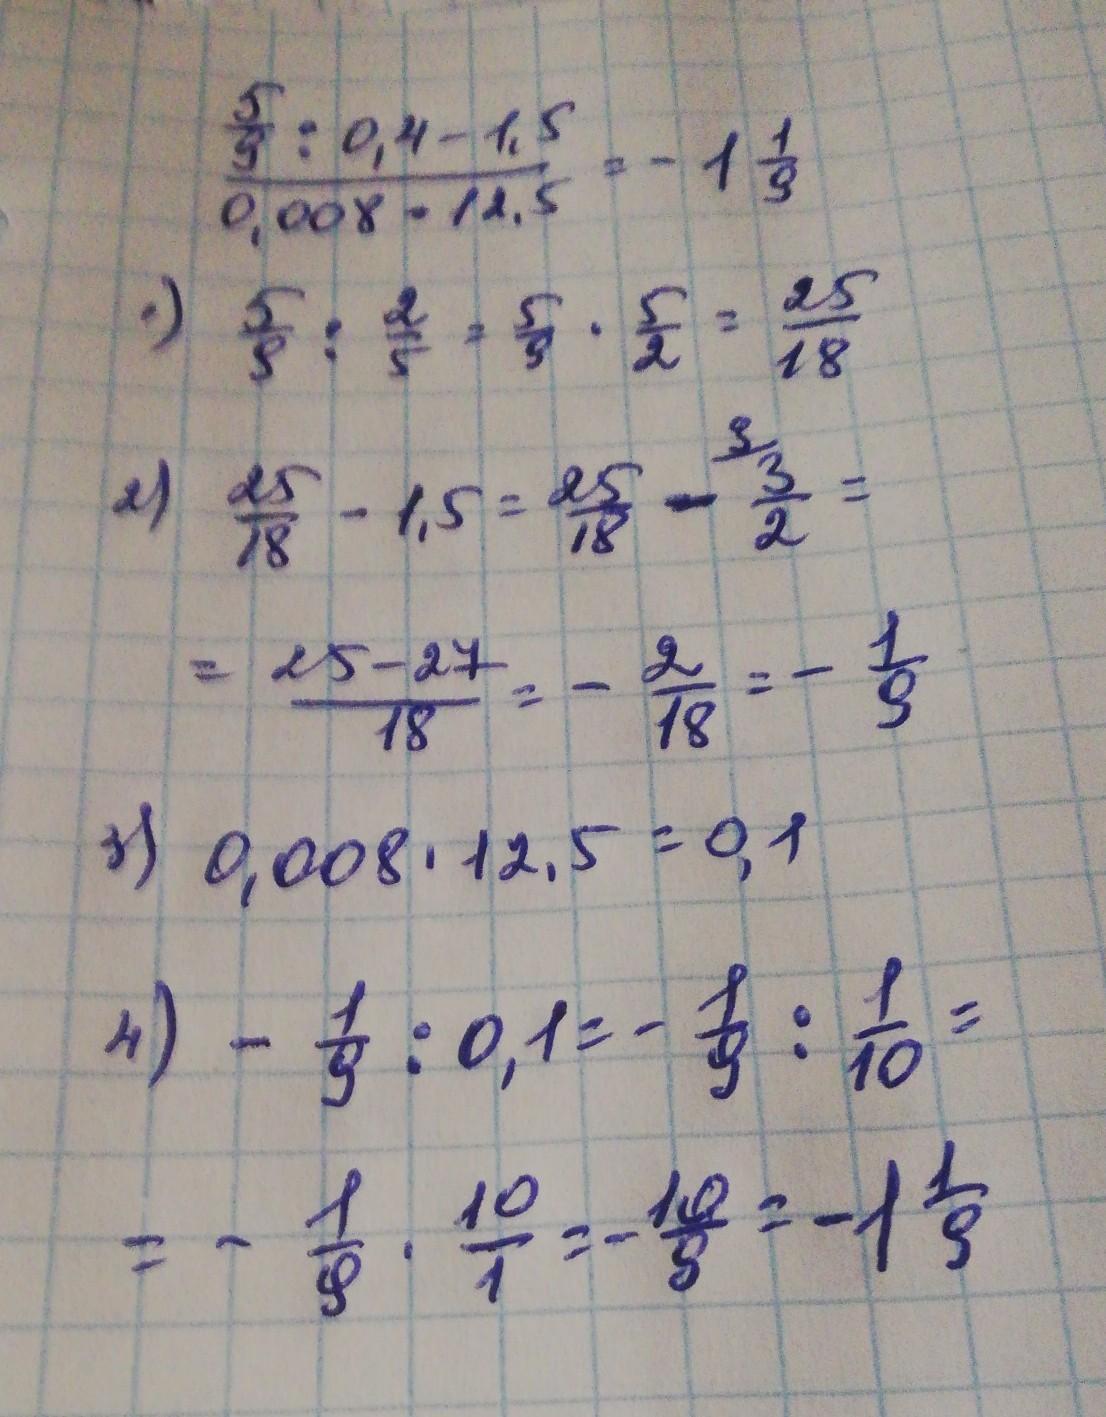 5/9 : 0,4 - 1,5
0,008 · 12,5 = - 1 1/9
1) 5/9 : 2/5 = 5/9 · 5/2 = 25/18
9
2) 25/18 - 1,5 = 25/18 - 3/2 =
= 25-27/18 = - 2/18 = - 1/9
3) 0,008 · 12,5 = 0,1
4) - 1/9 : 0,1 = - 1/9 : 1/10 =
= - 1/9 · 10/1 = - 10/9 = - 1 1/9